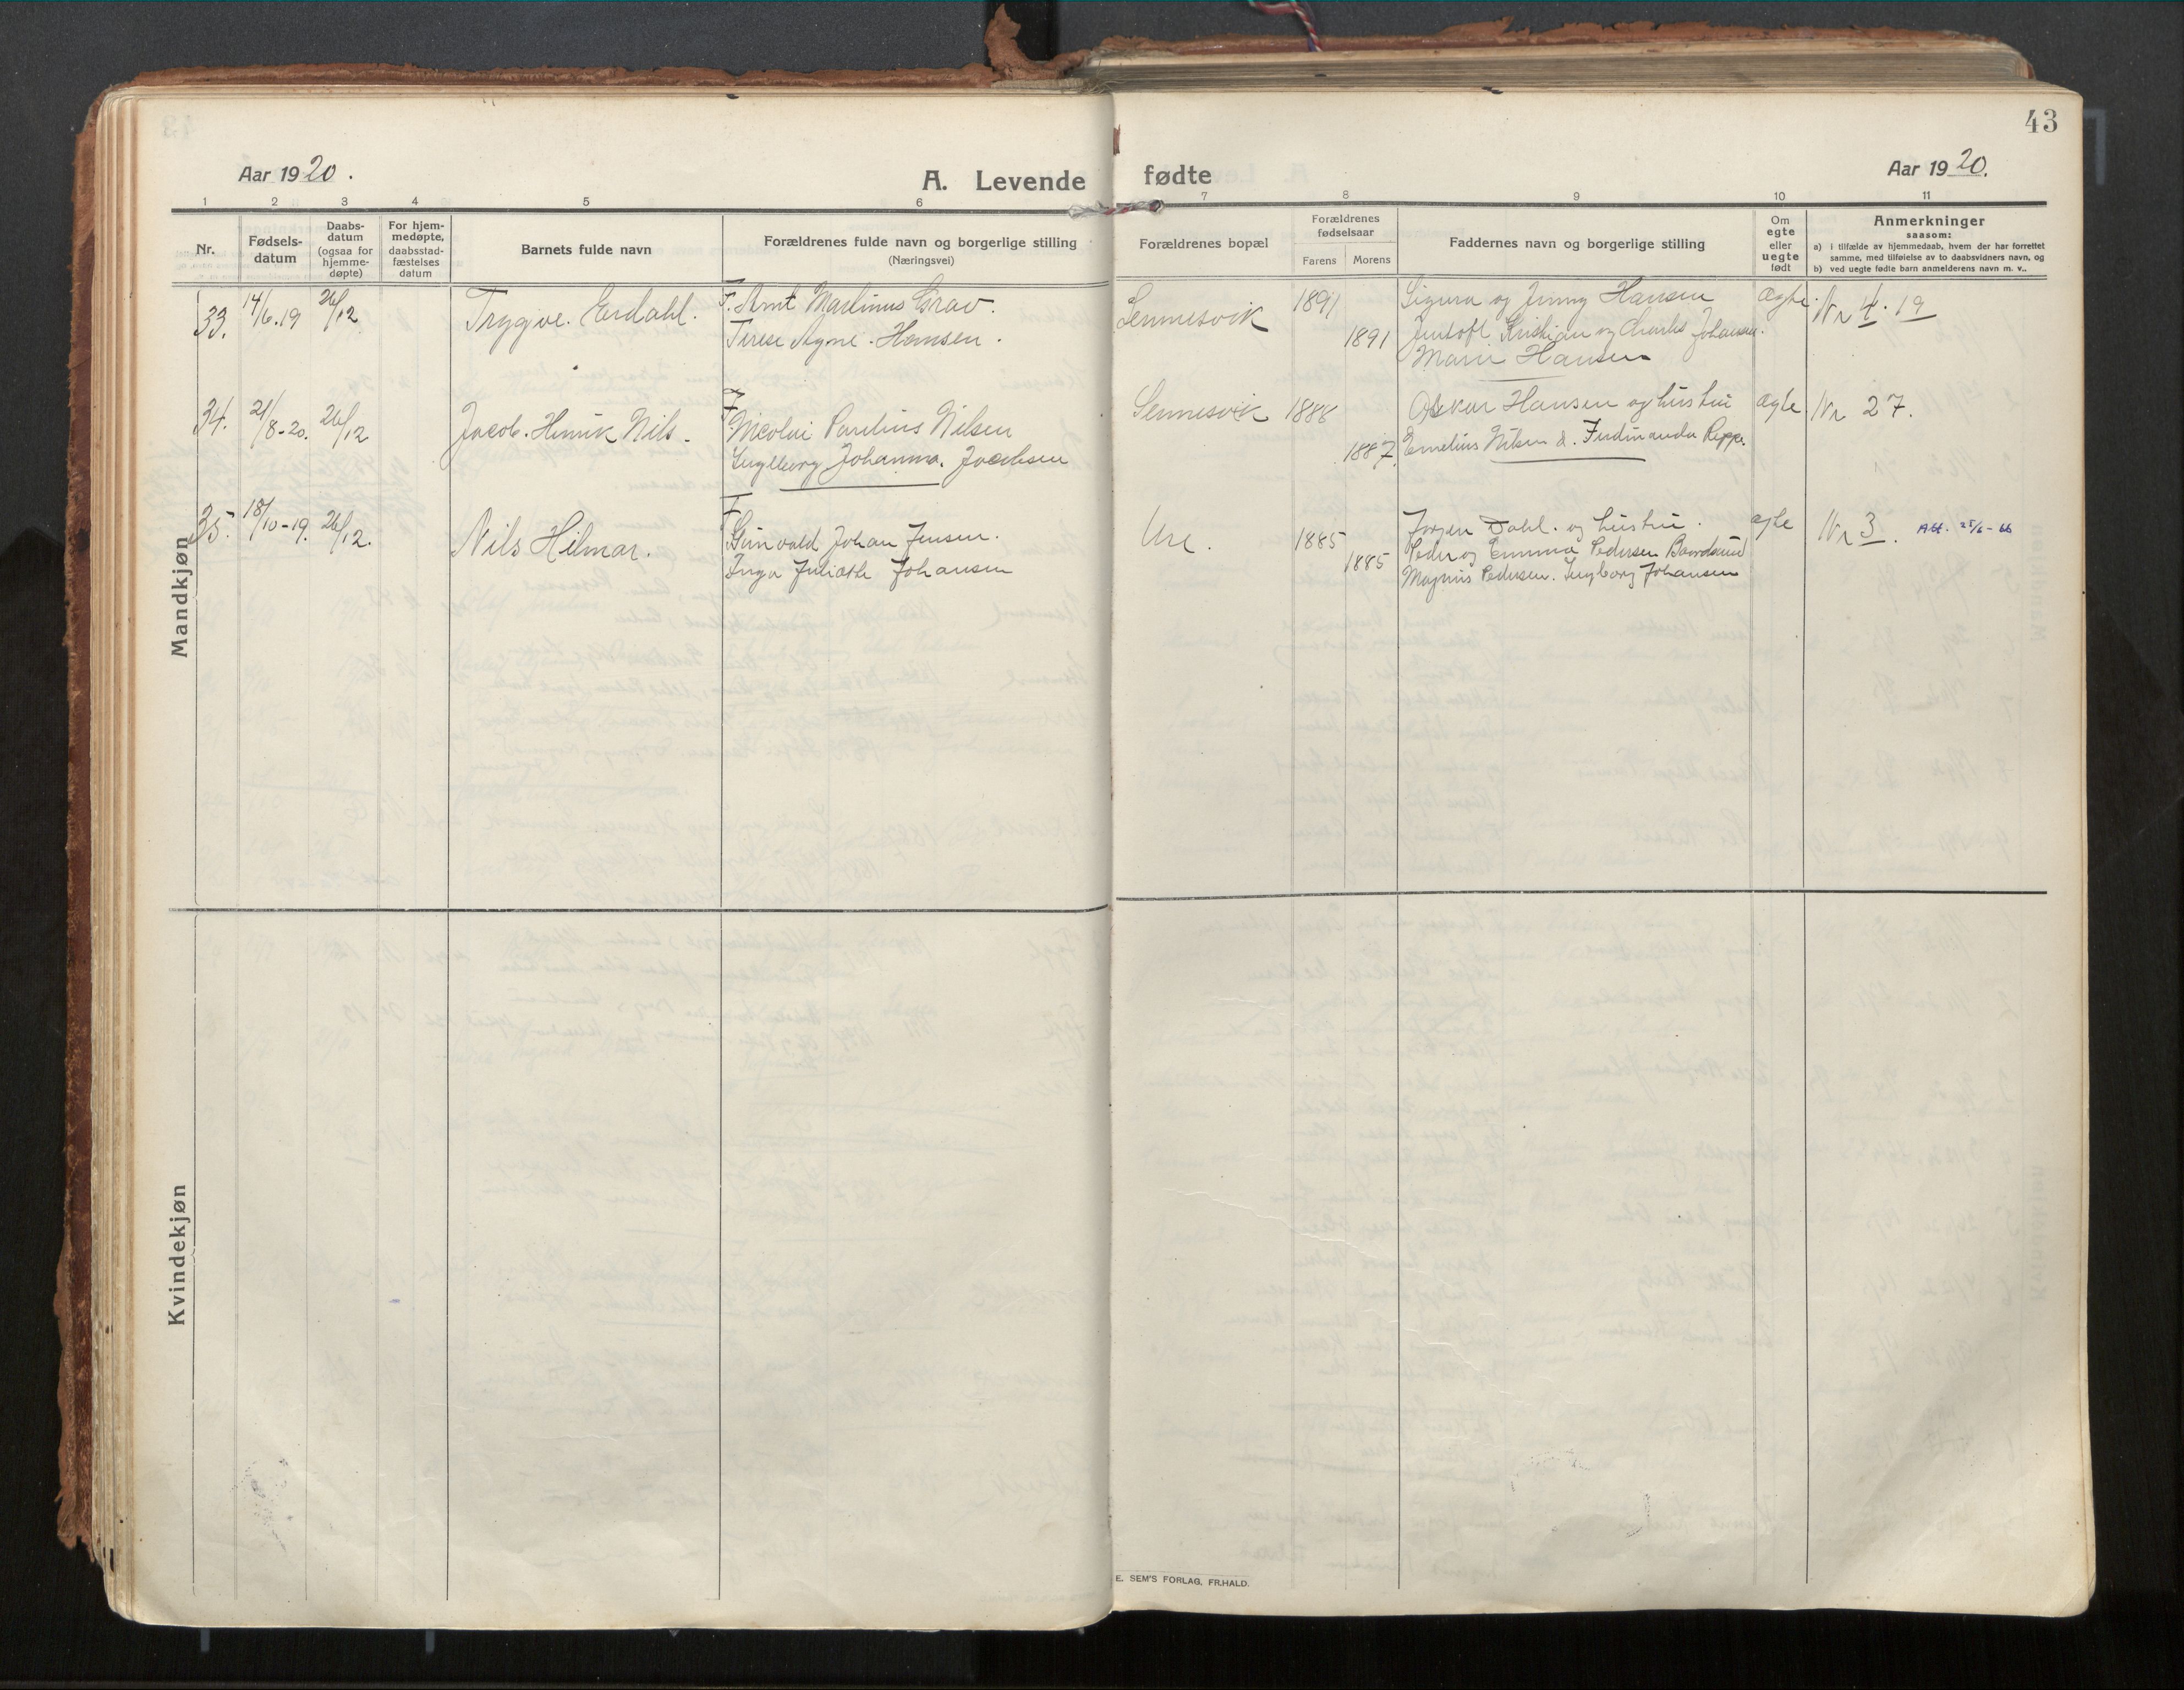 43
Aar 1920.
A. Levende fødte
Aar 1920.
1 2 3 4 5 6 7 8 9 10 11
Nr.
Fødsels-
datum
Daabs-
datum
(ogsaa for
hjemme-
døpte)
For hjem-
medøpte,
daabsstad-
fæstelses
datum
Barnets fulde navn
Forældrenes fulde navn og borgerlige stilling
(Næringsvei)
Forældrenes bopæl
Forældrenes
fødselsaar
Farens Morens
Faddernes navn og borgerlige stilling
Om
egte
eller
uegte
født
Anmerkninger
saasom:
a) i tilfælde av hjemmedaab, hvem der har forrettet
samme, med tilføielse av to daabsvidners navn, og
b) ved uegte fødte barn anmelderens navn m. v..
Mandkjøn
33. 14/6.19 26/12 Trygve. Erdahl. F. Arnt Martinus Grav. Sennesvik 1891 og Jenny Hansen Ægte. Nr 4. 19
Terese Agne. Hansen. 1891 Kristian og Charles Johansen.
Marie Hansen
34. 21/8-20. 26/12 Jacob. Henrik Nils. F. Sennesvik 1888 Oskar Hansen og hustru ægte Nr 27.
Nicolai Paulius Nilsen 1887 Emelius Nilsen & Ferdinanda Reppe.
Ingeborg Johanna. Jacobsen
35. 18/10-19. 26/12. Nils Hilmar. F. Ure. 1885 Jørgen Dahl. og hustru. ægte Nr 3. Att. 25/6-66
Gunvald Johan Jensen. 1885 Peder og Emma Pedersen
Inga Juliathe Johansen Magnus Pedersen. Ingeborg Johansen
Kvindekjøn
E. SEM'S FORLAG, FR.HALD.